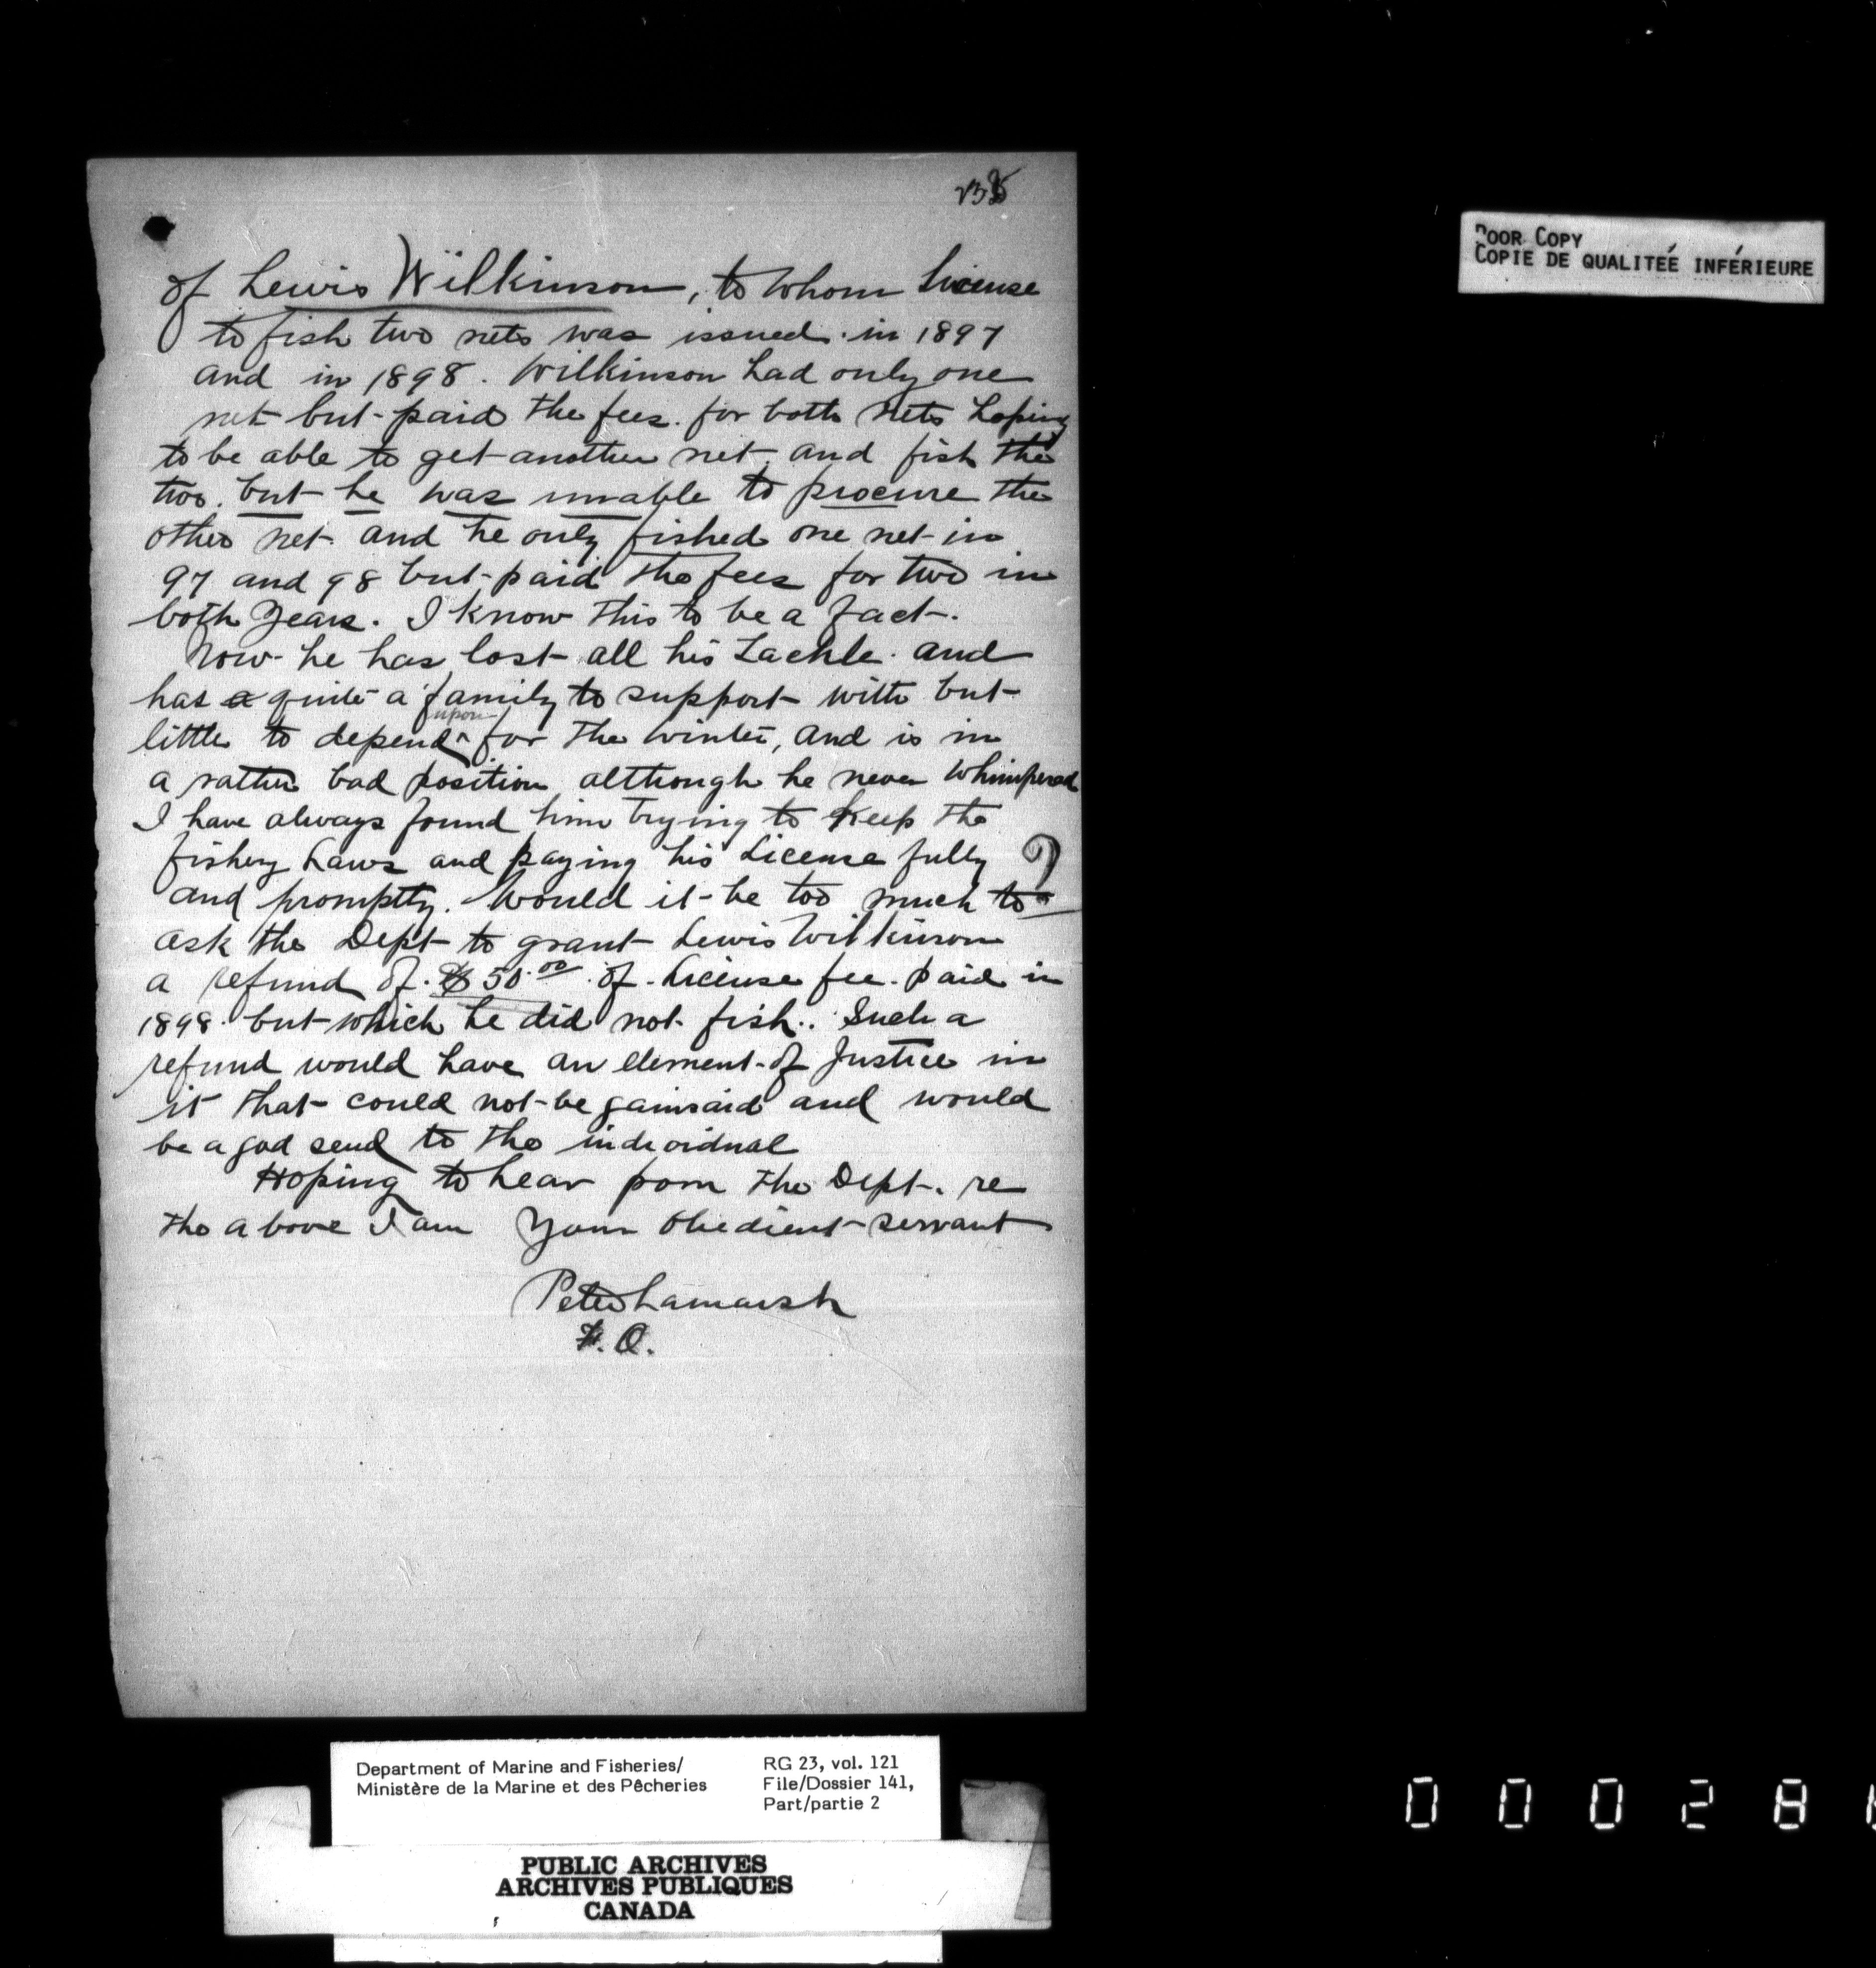 of Lewis Wilkinson, to whom License
to fish two nets was issued in 1897
and in 1898. Wilkinson had only one
net but paid the fees for both nets hoping
to be able to get another net and fish the
two. but he was unable to procure the
other net and he only fished one net in
97 and 98 but paid the fees for two in
both Years. I know this to be a fact.
Now he has lost all his Tackle and
has a quite a family to support with but
little to depend upon for the winter, and is in
a rather bad position although he never whimpered
I have always found him trying to keep the
fishery Laws and paying his License fully
and promptly. Would it be too much to
ask the Dept to grant Lewis Wilkinson
a refund of $50.00 of License fee paid in
1898 but which he did not fish. Such a
refund would have an element of Justice in
it that could not be gainsaid and would
be a god send to the individual
Hoping to hear from the Dept. re
the above I am Your Obedient servant
Peter Lamarsh
F. O.
POOR COPY
COPIE DE QUALITEÉ INFÉRIEURE
Department of Marine and Fisheries/
Ministère de la Marine et des Pêcheries
RG 23, vol. 121
File/Dossier 141,
Part/partie 2
PUBLIC ARCHIVES
ARCHIVES PUBLIQUES
CANADA
0 0 0 2 8